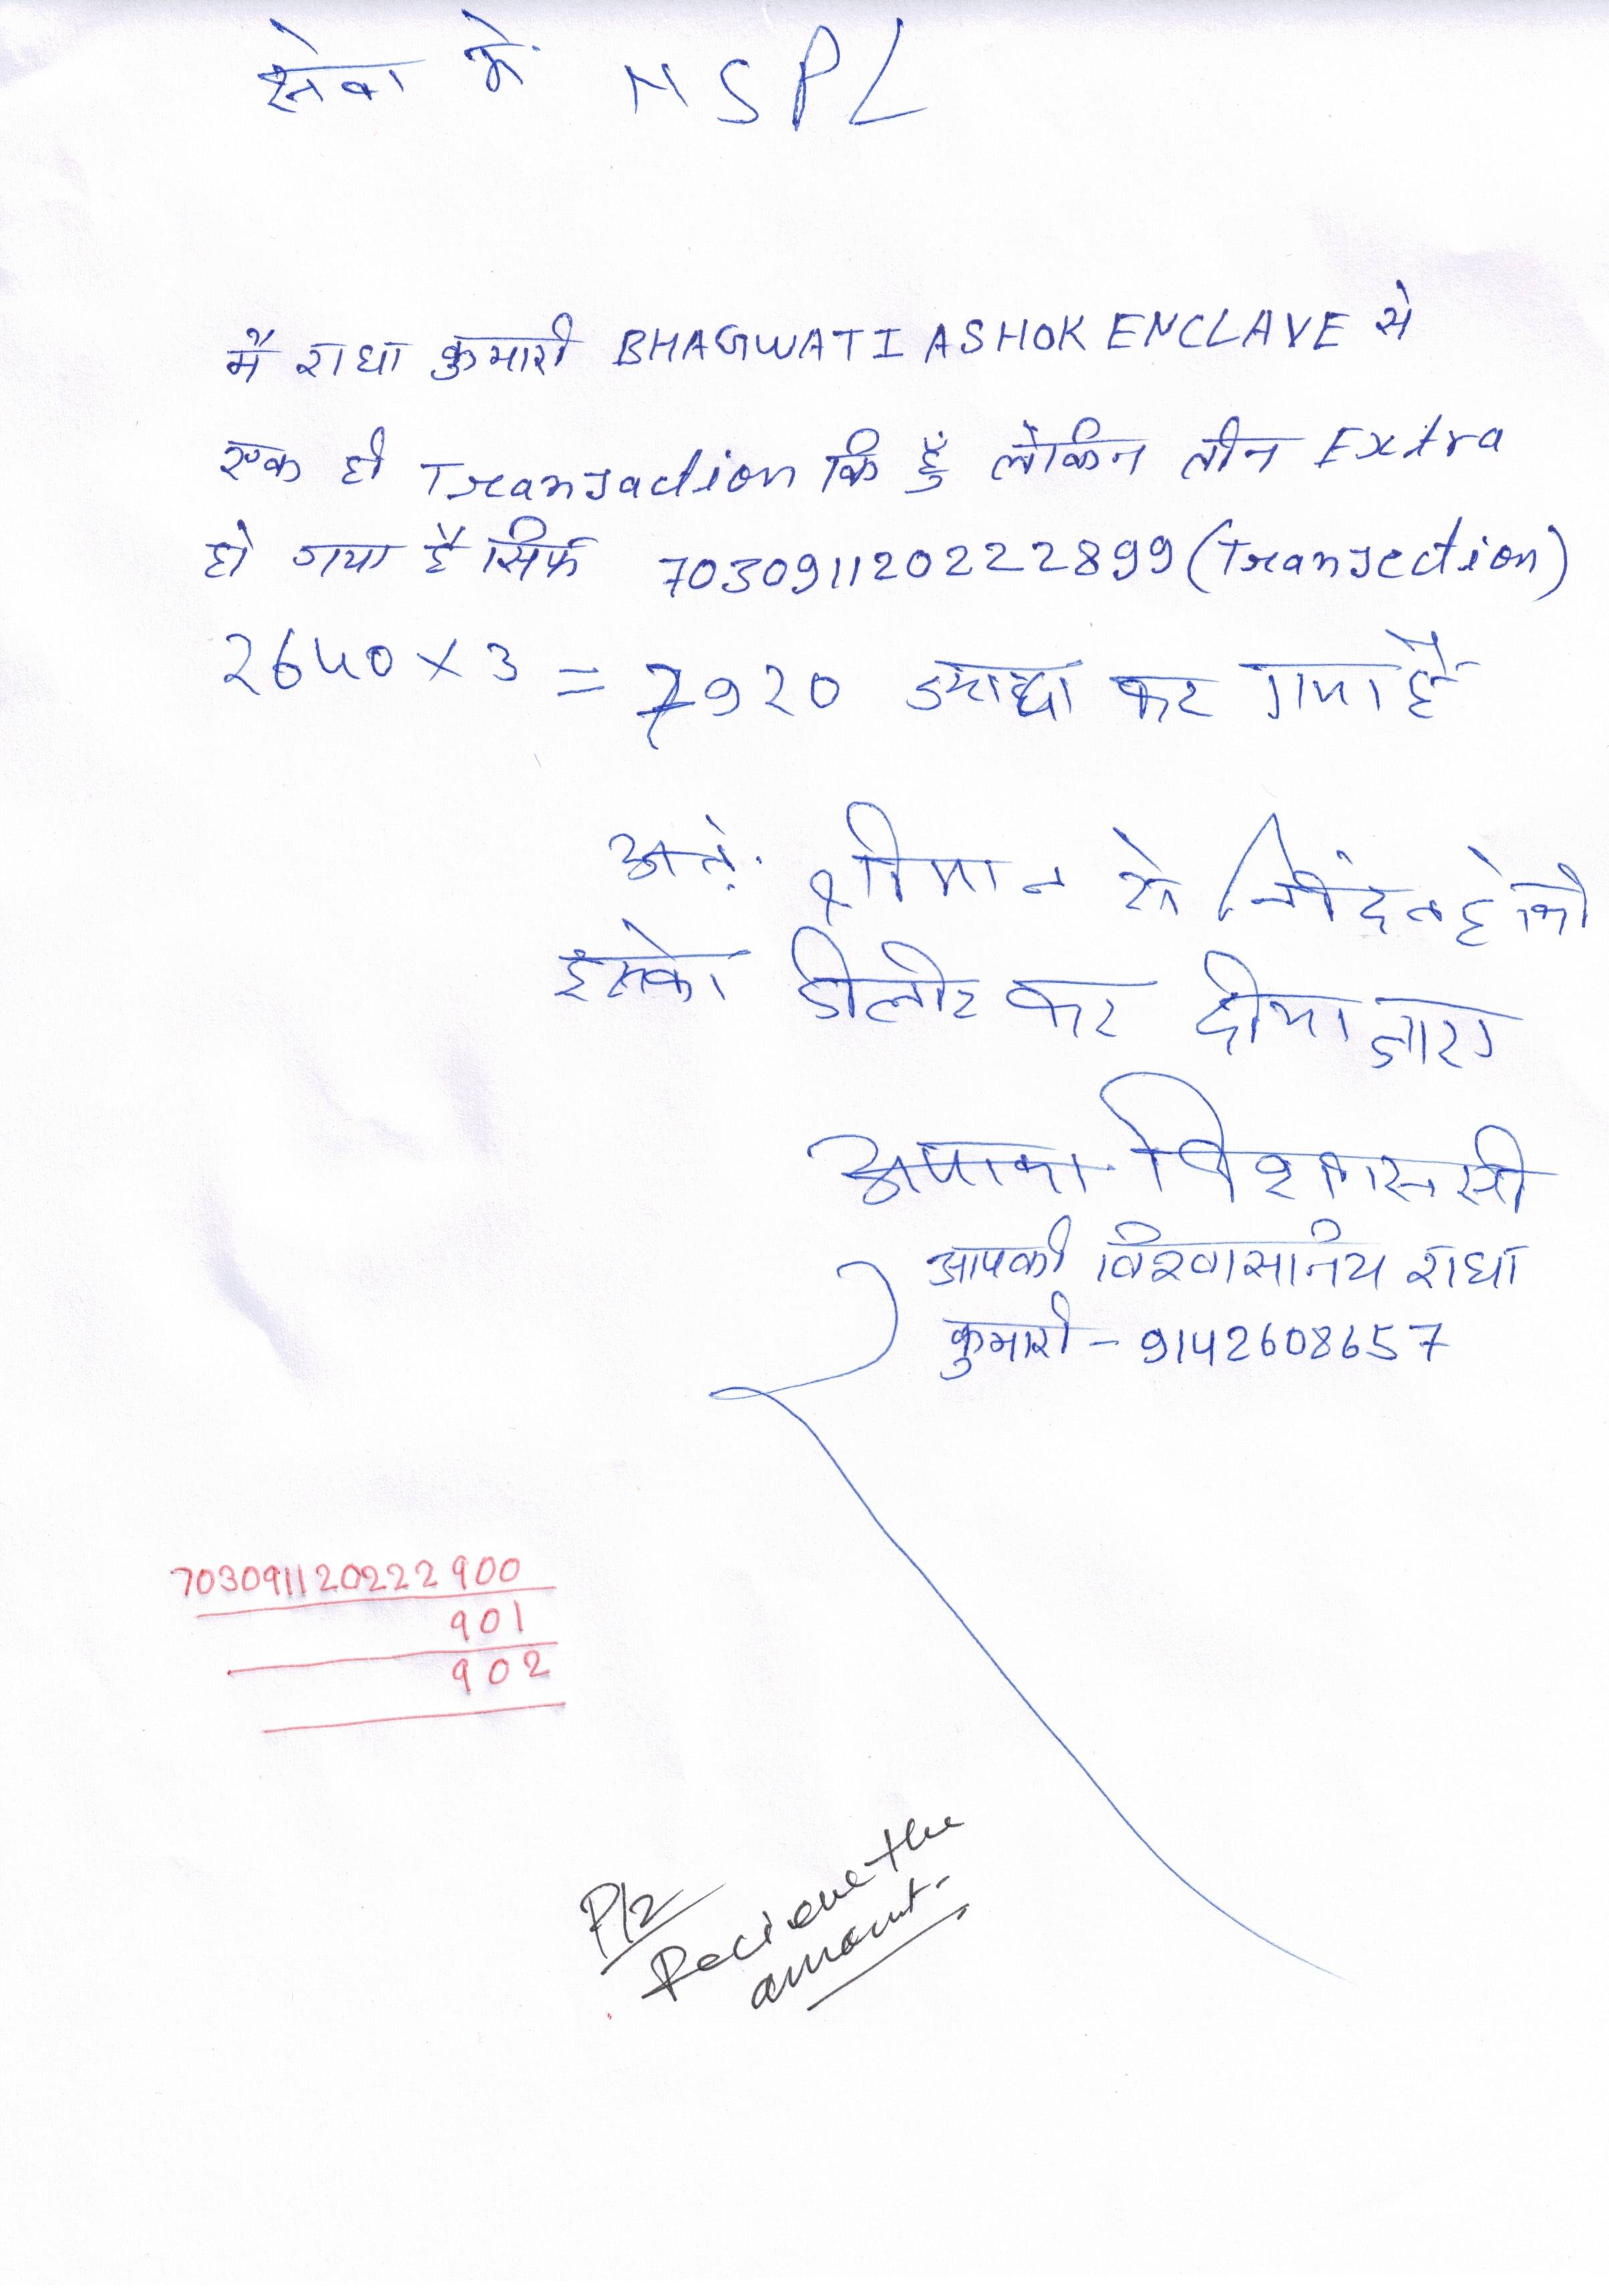 सेवा में NSPL
मैं राधा कुमारी BHAGWATI ASHOK ENCLAVE से
एक ही Transaction कि हुँ लेकिन तीन Extra
हो गया है सिर्फ 703091120222899 (Transection)
2640 X 3 = 7920 ज्याद्या कर गया है
अतः श्रीमान से निवेदन है की
इसको डीलीट कर दीया जाए
आपका विश्वासी
आपकी विश्वासनिय राधा
कुमारी - 9142608657
703091120222900
901
902
Plz
Recieve the
amount.